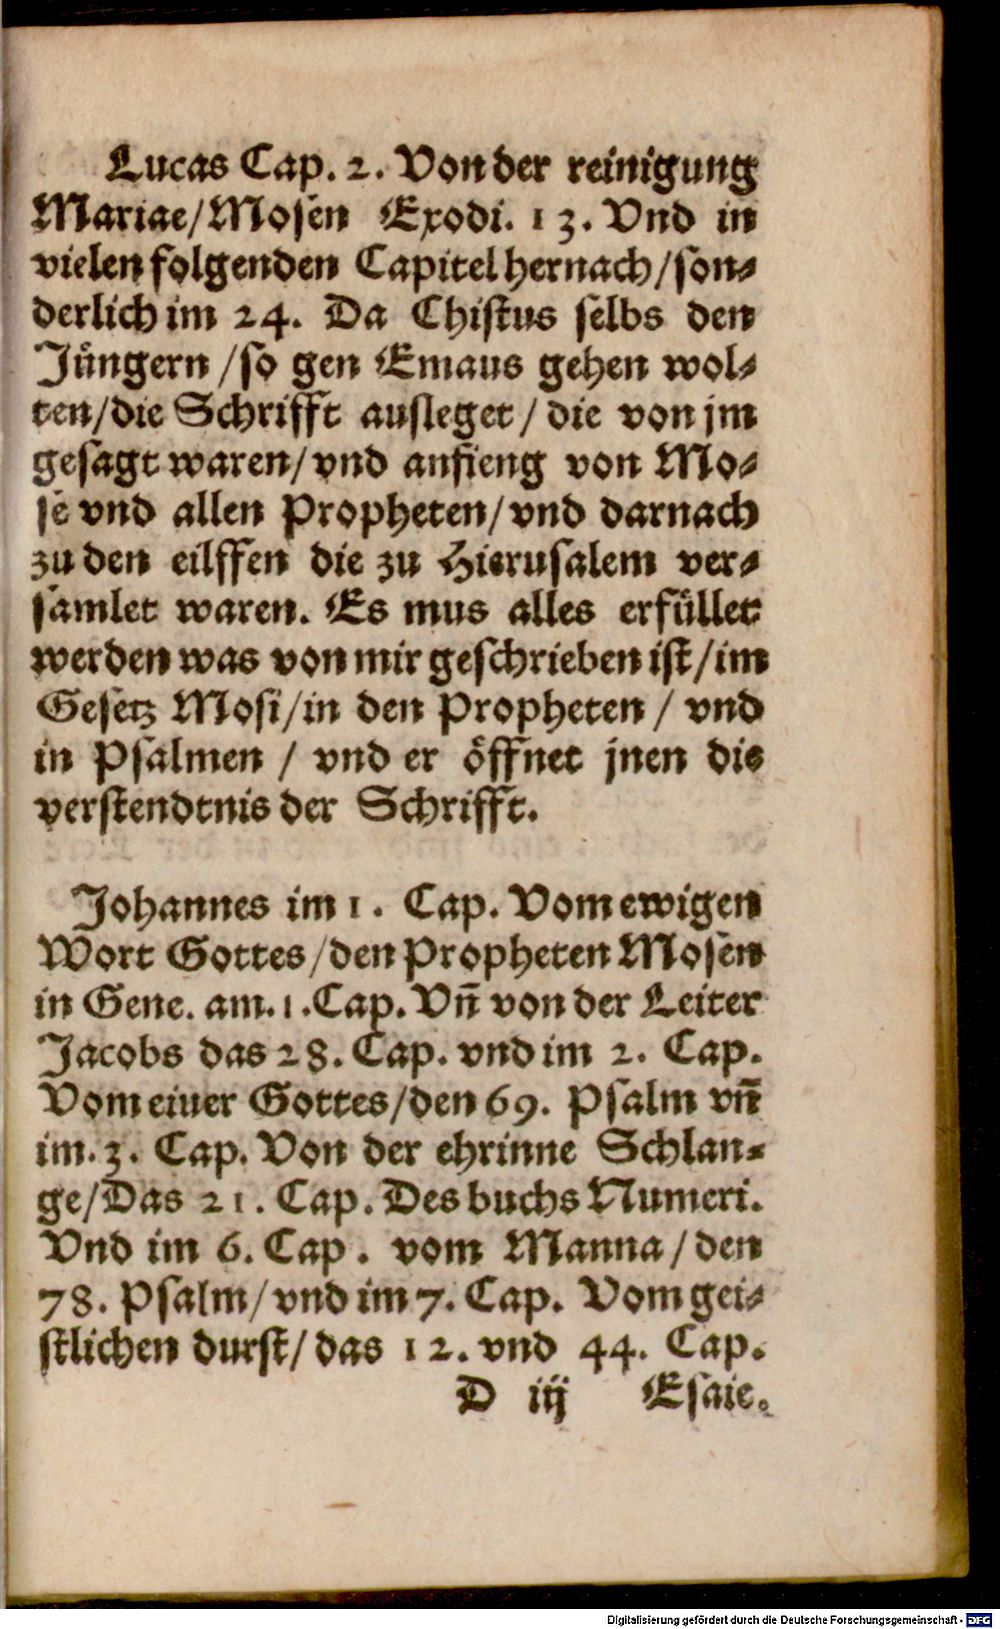 Lucas Cap. 2. Von der reinigung
Mariae/Mosen Exodi. 13. Vnd in
vielen folgenden Capitel hernach/son⸗
derlich im 24. Da Chistus selbs den
Jüngern /so gen Emaus gehen wol⸗
ten/die Schrifft ausleget / die von jm
gesagt waren/vnd anfieng von Mo⸗
se vnd allen Propheten/vnd darnach
zu den eilffen die zu Hierusalem ver⸗
samlet waren. Es mus alles erfüllet
werden was von mir geschrieben ist/im
Gesetz Mosi/in den Propheten / vnd
in Psalmen / vnd er öffnet jnen die
verstendtnis der Schrifft.
Johannes im 1. Cap. Vom ewigen
Wort Gottes/den Propheten Mosen
in Gene. am. 1. Cap. Vñ von der Leiter
Jacobs das 28. Cap. vnd im 2. Cap.
Vom eiuer Gottes/den 69. Psalm vñ
im. 3. Cap. Von der ehrinne Schlan⸗
ge/Das 21. Cap. Des buchs Numeri.
Vnd im 6. Cap. vom Manna/den
78. Psalm/vnd im 7. Cap. Vom gei⸗
stlichen durst/das 12. vnd 44. Cap.
D iij Esaie.
Digitalisierung gefördert durch die Deutsche Forschungsgemeinschaft - DFG